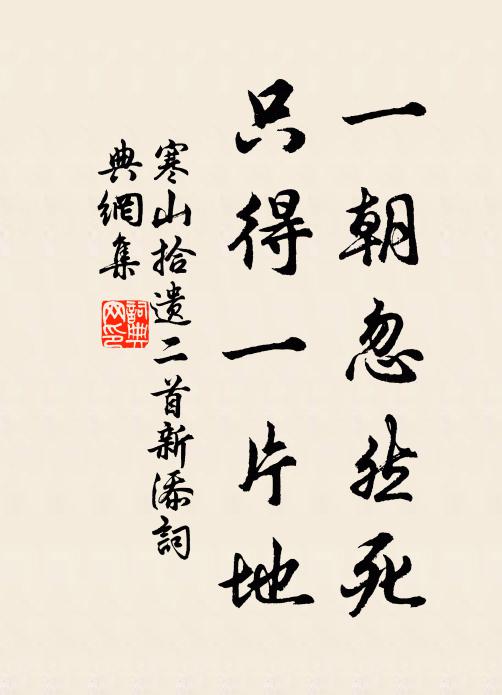 一朝忽然死
只得一片地
寒山拾遗二首新添詞
典網集
詞典
网印